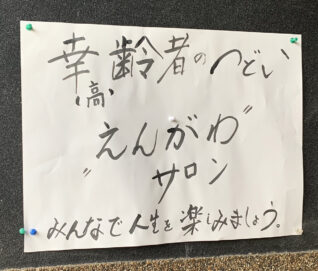 幸齢者のつどい
(高)
"えんがわ"
サロン
みんなで人生を楽しみましょう。